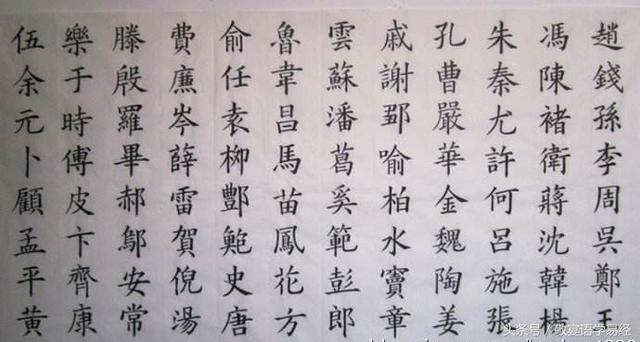 趙錢孫李周吳鄭王
馮陳褚衛蔣沈韓楊
朱秦尤許何呂施張
孔曹嚴華金魏陶姜
戚謝鄒喻柏水竇章
雲蘇潘葛奚範彭郎
魯韋昌馬苗鳳花方
俞任袁柳酆鮑史唐
費廉岑薛雷賀倪湯
滕殷羅畢郝鄔安常
樂于時傅皮卞齊康
伍余元卜顧孟平黃
头条号